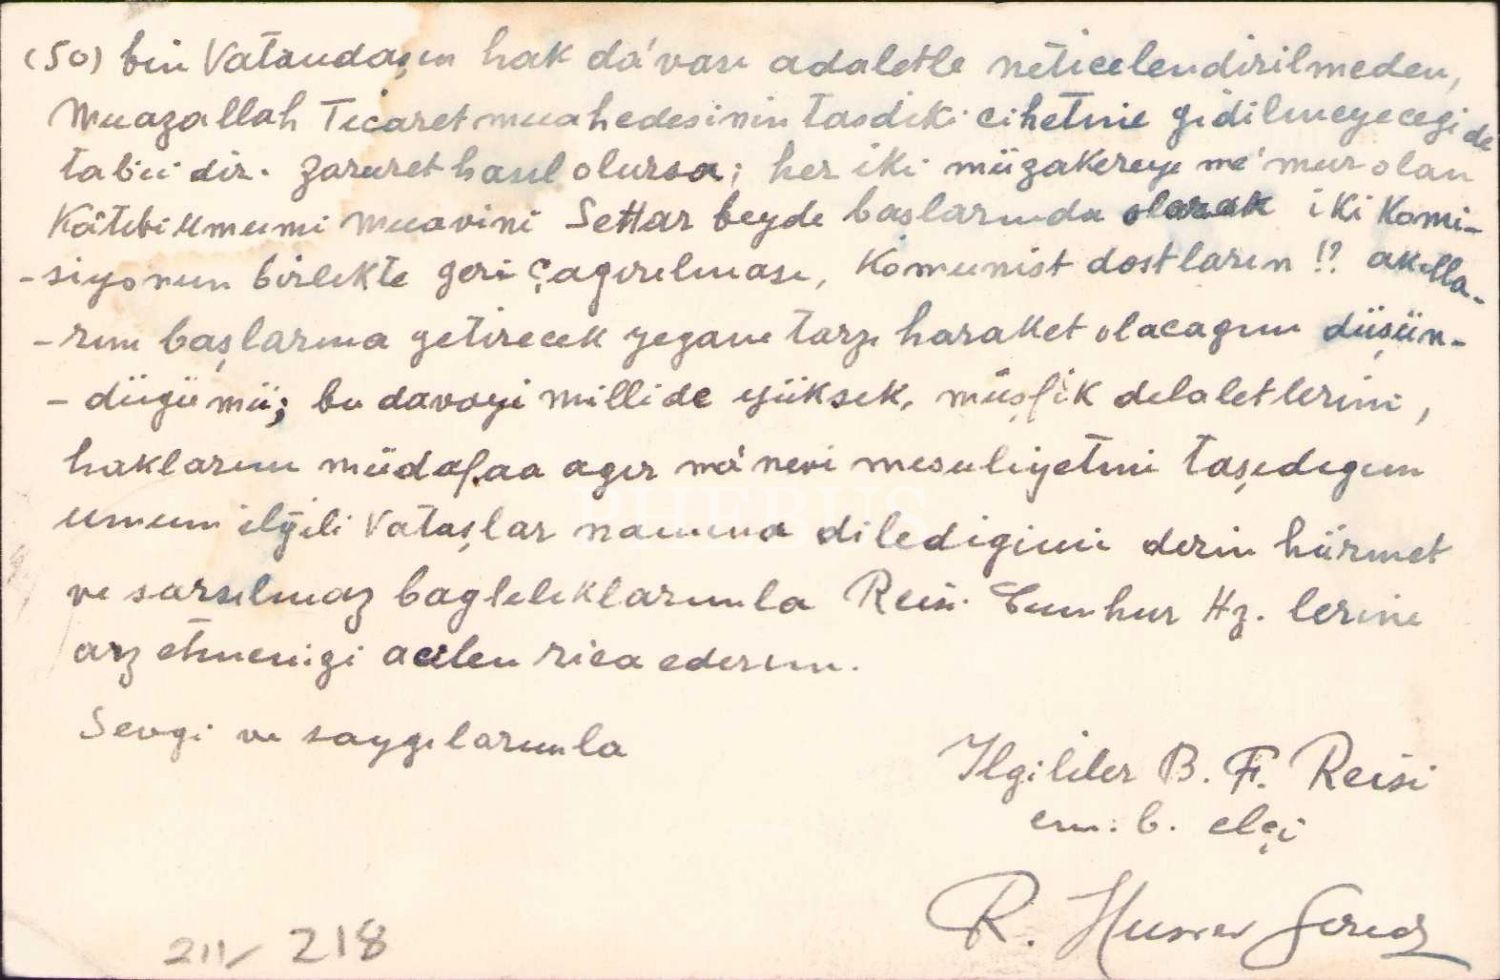 (50) bin Vatandaşın hak da'vası adaletle neticelendirilmeden,
Muazallah Ticaret muahedesinin tasdiki cihetine gidilmeyecegi de
tabii dir. Zaruret hasıl olursa; her iki müzakereye me'mur olan
Kâtibi Umumi Muavini Settar beyde başlarında olarak iki Komi-
-siyonun birlikte geri çagırılması, Komunist dostların !? akılla-
-rını başlarına getirecek yegane tarzı haraket olacagını düşün-
-dügümü; bu davayi millide yüksek, müşfik delaletlerini,
haklarını müdafaa agır ma'nevi mesuliyetini taşıdıgım
umum ilgili Vataşlar namına diledigimi derin hürmet
ve sarsılmaz baglılıklarımla Reisi Cumhur Hz. lerine
arz etmenizi acilen rica ederim.
Sevgi ve saygılarımla
Ilgililer B. F. Reisi
em. b. elçi
R. Husrev Gerede
211/ 218
PHEBUS